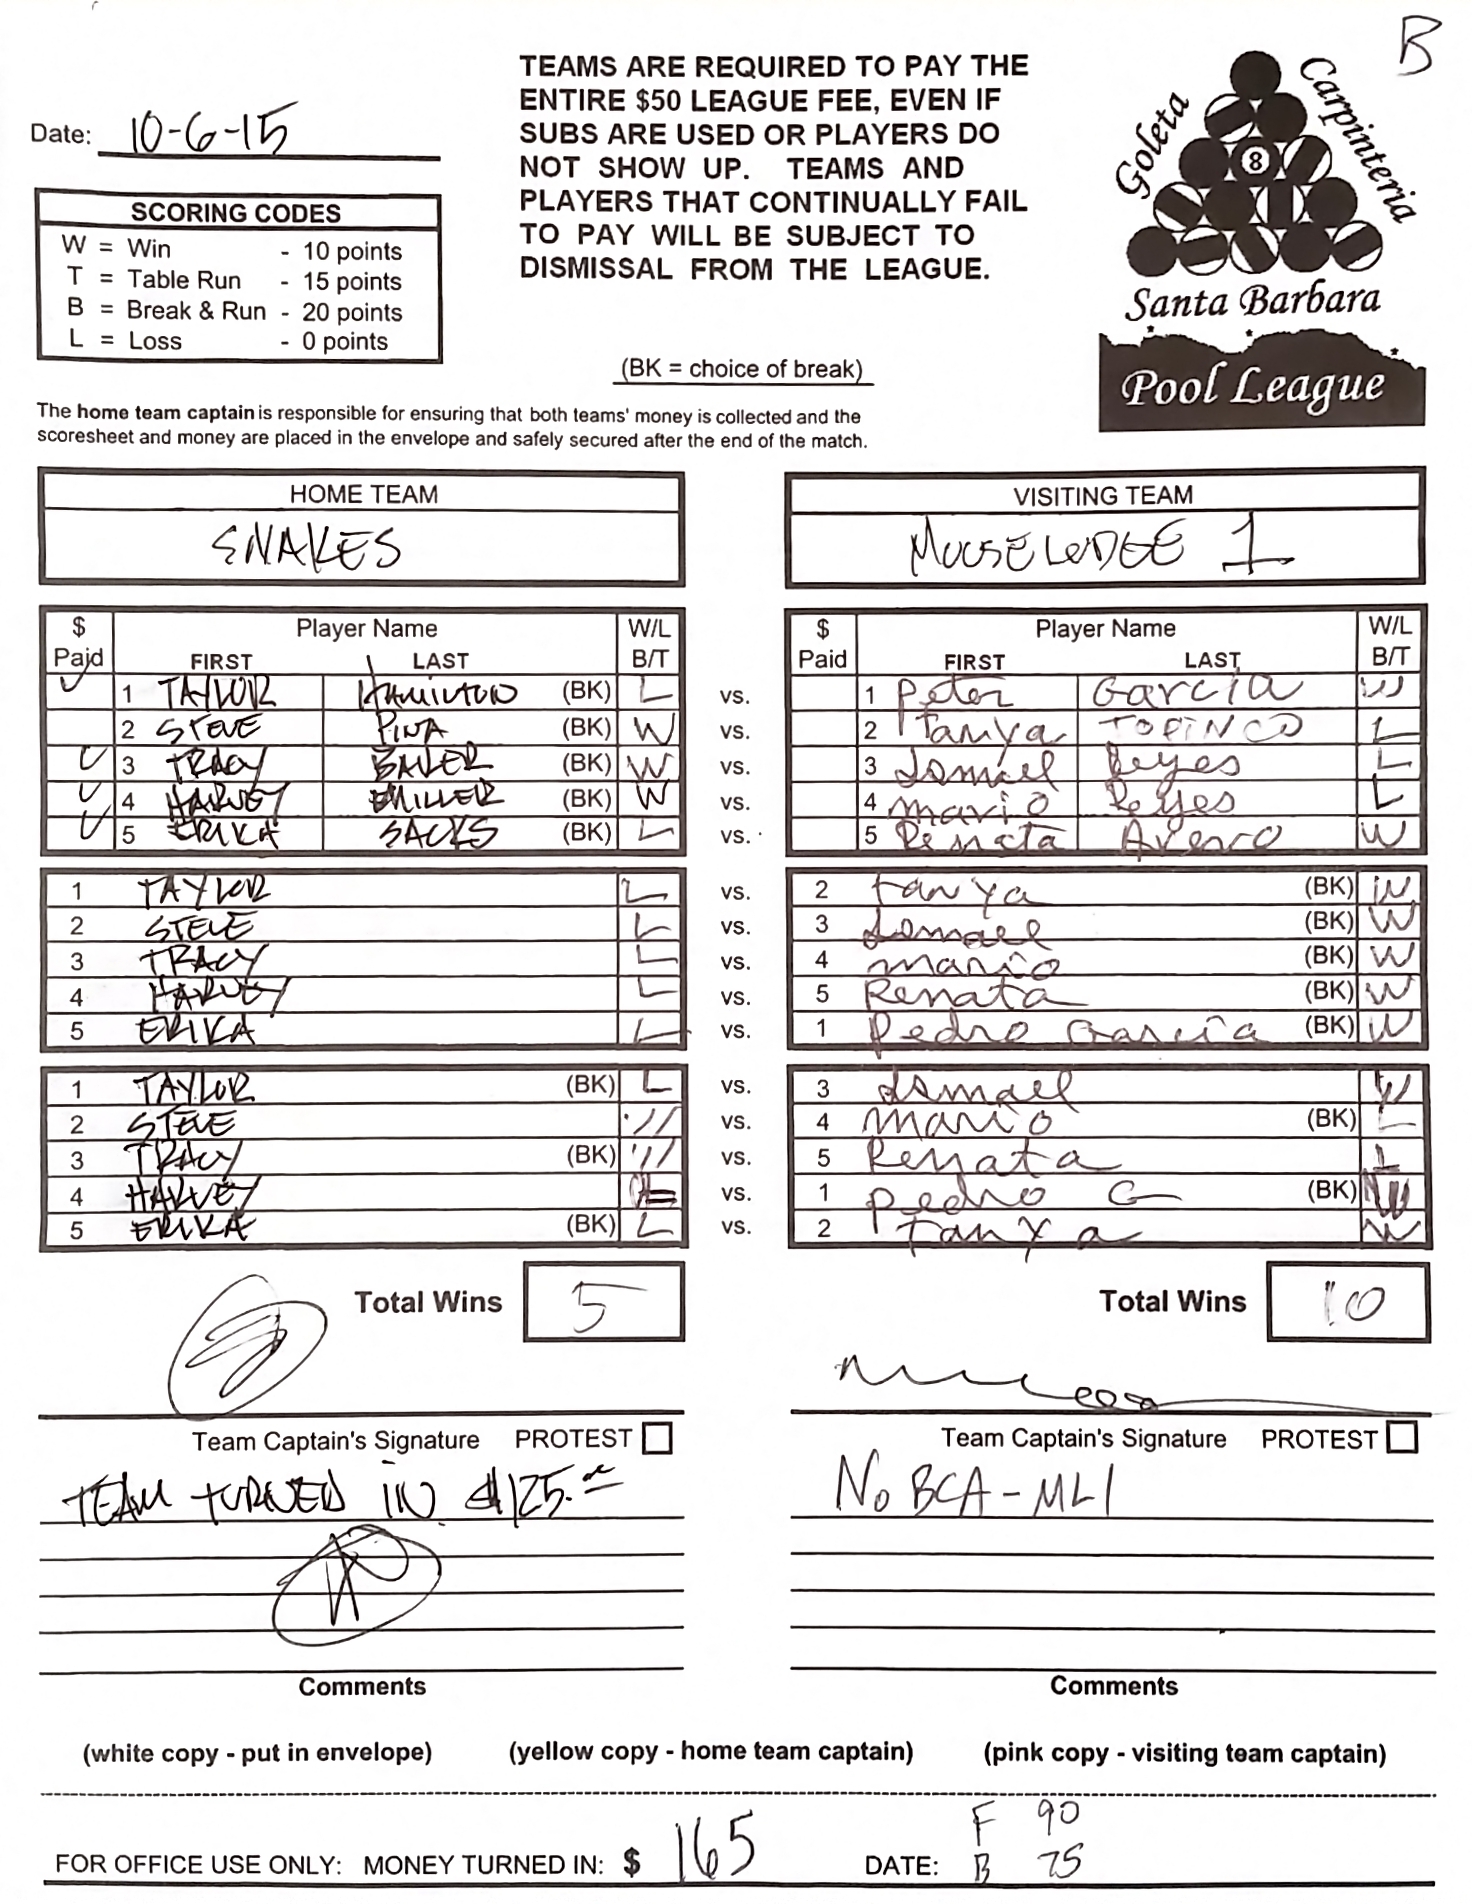 B
TEAMS ARE REQUIRED TO PAY THE
ENTIRE $50 LEAGUE FEE, EVEN IF
SUBS ARE USED OR PLAYERS DO
NOT SHOW UP. TEAMS AND
PLAYERS THAT CONTINUALLY FAIL
TO PAY WILL BE SUBJECT TO
DISMISSAL FROM THE LEAGUE.
Goleta
Carpinteria
8
Santa Barbara
Pool League
Date: 10-6-15
SCORING CODES
W = Win - 10 points
T = Table Run - 15 points
B = Break & Run - 20 points
L = Loss - 0 points
(BK = choice of break)
The home team captain is responsible for ensuring that both teams' money is collected and the
scoresheet and money are placed in the envelope and safely secured after the end of the match.
HOME TEAM VISITING TEAM
SNAKES MOOSE LODGE 1
$ Player Name W/L $ Player Name W/L
Paid FIRST LAST B/T Paid FIRST LAST B/T
1 TAYLOR HAMILTON (BK) L vs. 1 Peter Garcia W
2 STEVE PINA (BK) W vs. 2 Tanya TOFINCO L
3 TRACY (BK) W vs. 3 Ismael Reyes L
4 HARVEY MILLER (BK) W vs. 4 Mario Reyes L
5 ERIKA SACKS (BK) L vs. 5 Renata W
1 TAYLOR L vs. 2 Tanya (BK) W
2 STEVE L vs. 3 Ismael (BK) W
3 TRACY L vs. 4 Mario (BK) W
4 HARVEY L vs. 5 Renata (BK) W
5 ERIKA L vs. 1 Pedro Garcia (BK) W
1 TAYLOR (BK) L vs. 3 Ismael W
2 STEVE W vs. 4 Mario (BK) L
3 TRACY (BK) W vs. 5 Renata L
4 HARVEY L vs. 1 Pedro G (BK) W
5 ERIKA (BK) L vs. 2 Tanya W
Total Wins 5 Total Wins 10
Team Captain's Signature PROTEST Team Captain's Signature PROTEST
TEAM TURNED IN $125.00 No BCA - ML1
Comments Comments
(white copy - put in envelope) (yellow copy - home team captain) (pink copy - visiting team captain)
F 90
FOR OFFICE USE ONLY: MONEY TURNED IN: $ 165 DATE: B 75